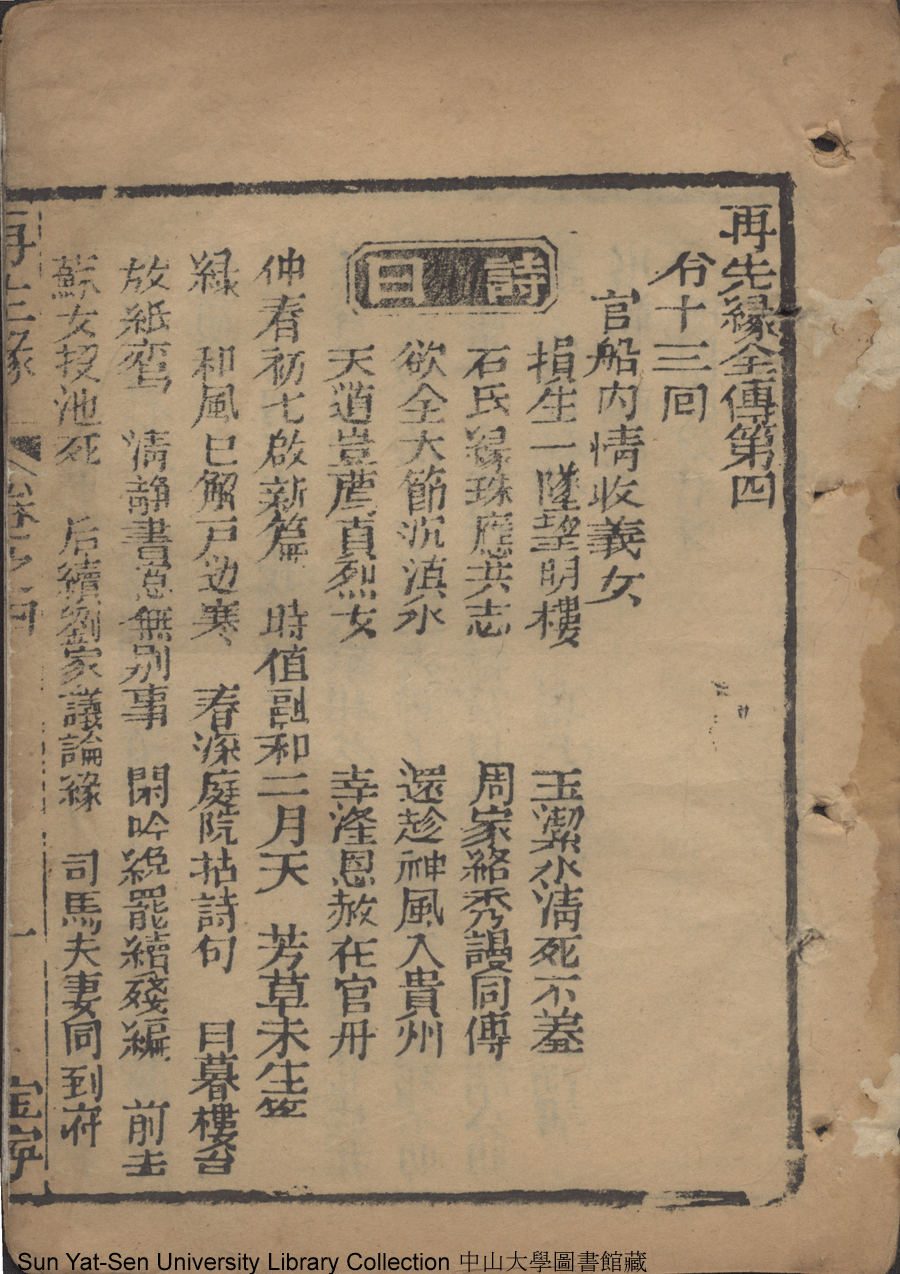 再先緣全傳第四
分十三回
官船內情收義女
損生一墜望明樓 玉潔水清死不羞
石氏綠珠應共志 周家絡秀謾同傳
欲全大節沉滇水 還趁神風入貴州
天道豈薦真烈女 幸逢恩赦在官舟
詩曰
仲春初七啟新篇 時值融和二月天 芳草未生竺
綠 和風已解戶边寒 春深庭院拈詩句 日暮樓台
放紙鸢 清靜書意無别事 閑吟絶罷續殘編 前去
蘇女投池死 后續劉家議論緣 司馬夫妻同到府
再生緣 卷之四 一 宝寧
Sun Yat-Sen University Library Collection 中山大學圖書館藏